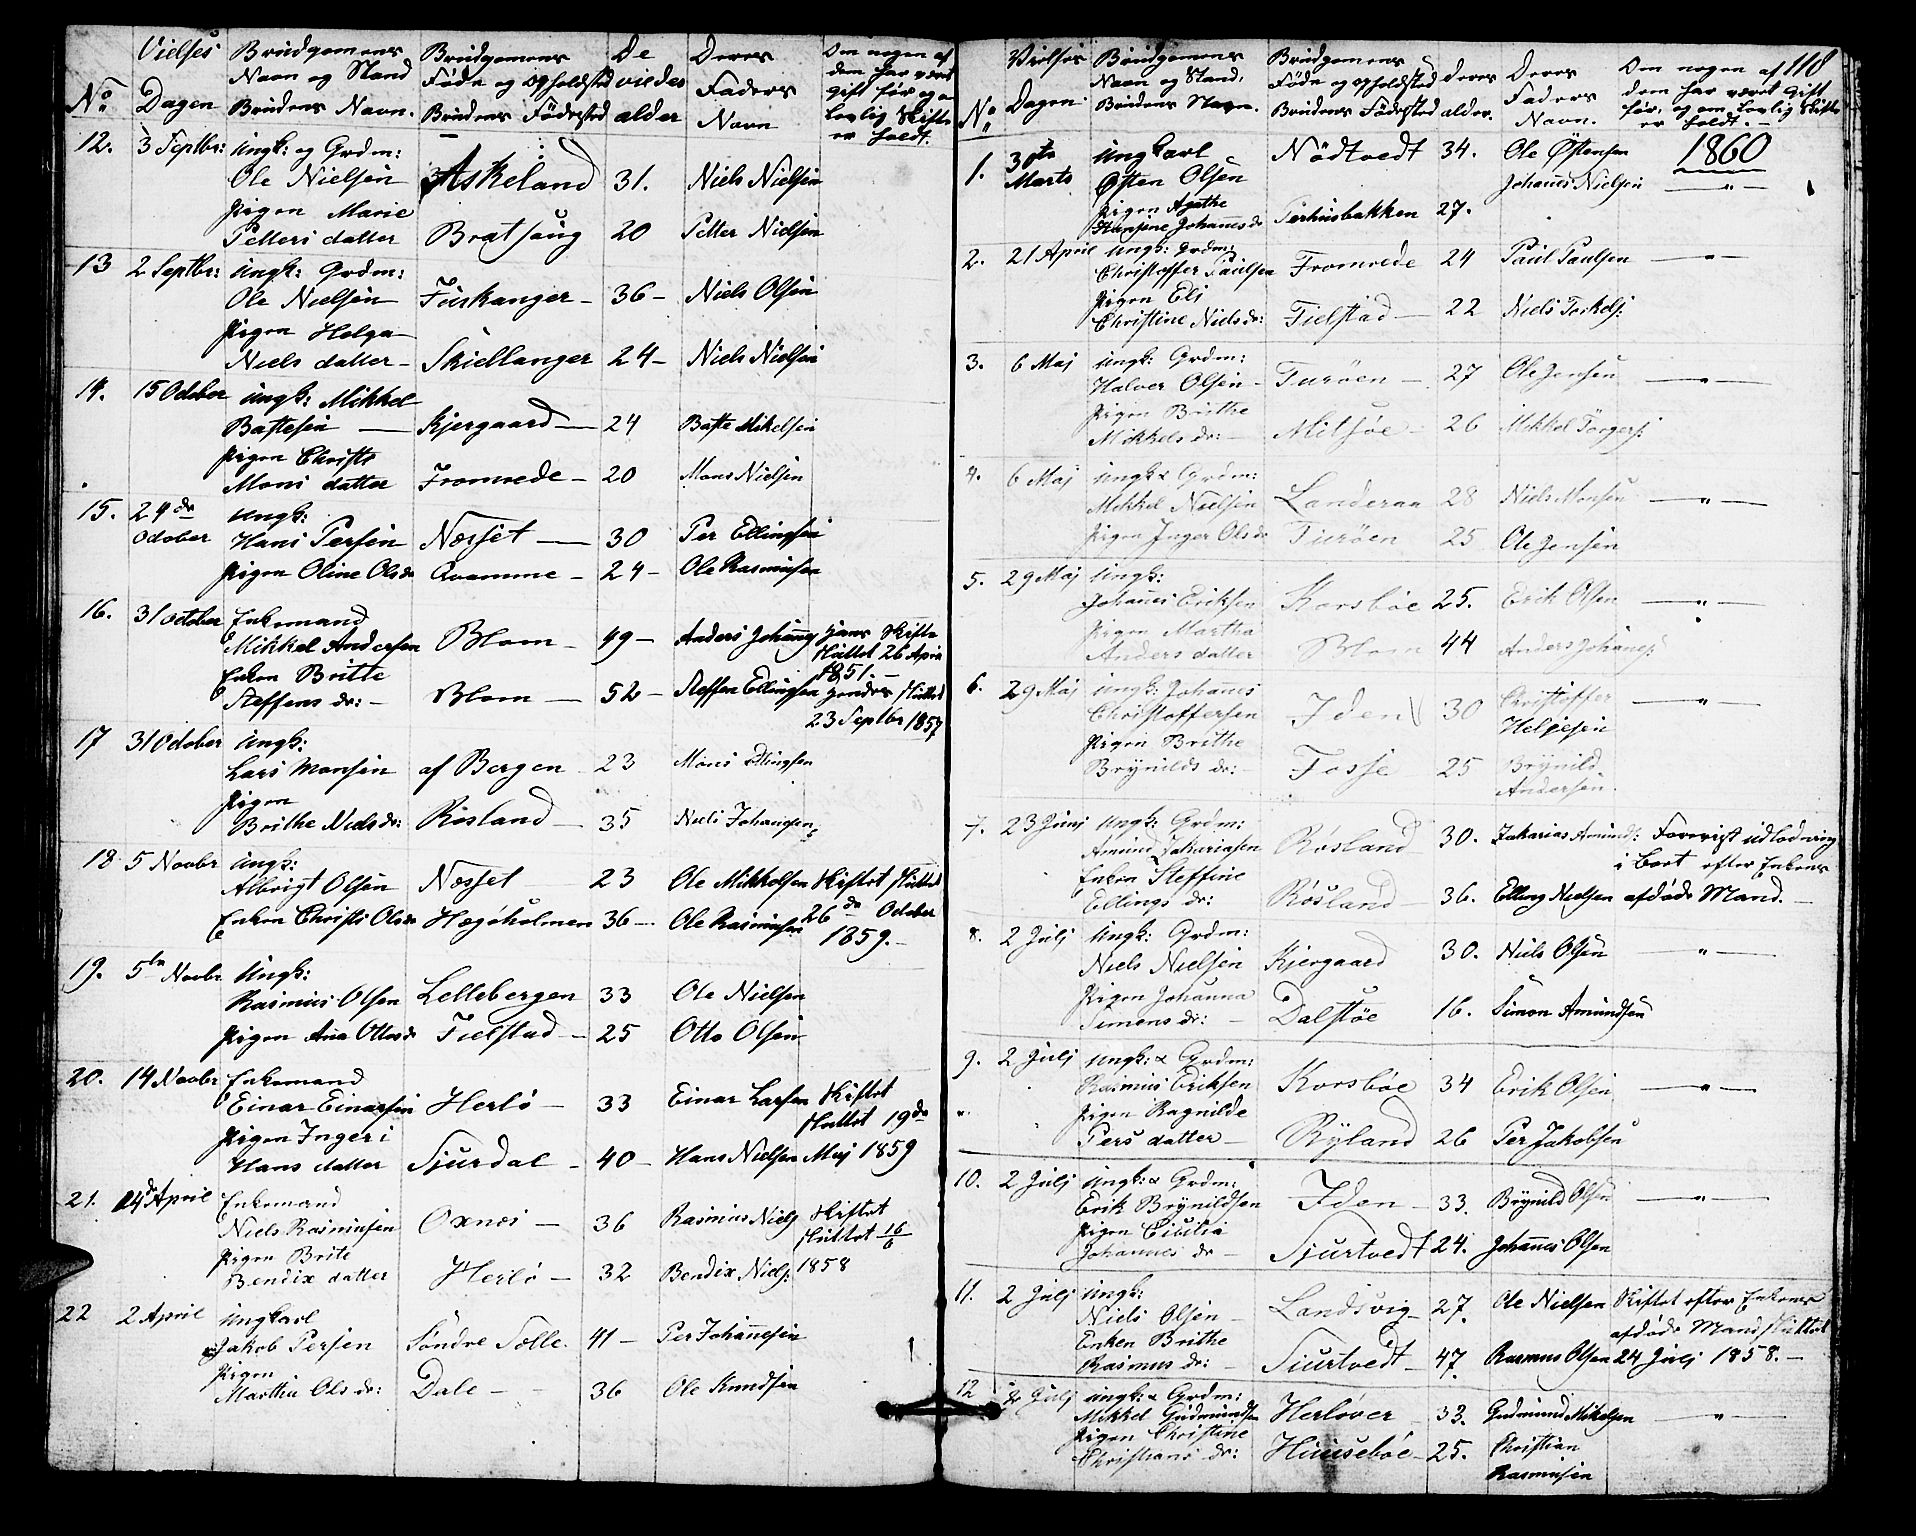 No
Vielses
Dagen
Brudgomens
Navn og Stand
Brudens Navn.
Brudgomens
Føde og Opholdsted
Brudens Fødested
De
viedes
alder
Deres
Faders
Navn
Om nogen af
dem har været
gift før og om
Lovlig Skifte
er holdt.
12. 3 Septbr: Ungk: og Grdm:
Ole Nielsen Askeland 31. Niels Nielsen
Pigen Marie
Petters datter Bratsaug 20 Petter Nielsen
13 2 Septbr: Ungk: Grdm:
Ole Nielsen Fuskanger - 36 - Niels Olsen
Pigen Helga
Niels datter - Skiellanger 24 - Niels Nielsen
14. 15 October Ungk: Mikkel
Bastesen Kjergaard 24 Baste Mikelsen
Pigen Christi
Mons datter Fromrede - 20 Mons Nielsen
15. 24de Ungk:
October Hans Persen Næsset 30 Per Ellingsen
Pigen Oline Olsdr Qvamme - 24 - Ole Rasmusen
16. 31 October Enkemand
Mikkel Andersen Blom - 49 - Anders Johanes: Hans Skifte
sluttet 26 April
Enken Britte 1851. -
Steffens dr: - Blom 52 - Steffen Ellingsen hendes sluttet
23 Septbr 1857
17 31 October Ungk:
Lars Monsen af Bergen 23 Mons Ellingsen
Pigen
Brithe Nielsdr: Rosland 35 Niels Johanesen
18 5 Novbr Ungk:
Albrigt Olsen Næsset 23 Ole Mikkelsen Skiftet sluttet
Enken Christi Olsdr Hægøholmen 36 - Ole Rasmusen 26de October
1859. -
19. 5te Novbr Ungk:
Rasmus Olsen Lellebergen 33 Ole Nielsen
Pigen Ana Ottosdr Fielstad 25 Otto Olsen
20. 14 Novbr Enkemand
Einar Einarsen Herlø 33 Einar Larsen Skiftet
Pigen Ingeri sluttet 19de
Hans datter Sjurdal - 40 - Hans Nielsen Maj 1859
21. 24de April Enkemand
Niels Rasmusen Oxnes 36 Rasmus Niels: Skiftet
sluttet 16/6
Pigen Brite
Bendix datter Herlø 32 Bendix Niels: 1858
22 2 April Ungkarl
Jakob Persen Søndre Tolle. 41 - Per Johannesen
Pigen
Martha Ols dr: Dale - 36 Ole Knudsen
118
No
Vielses
Dagen
Brudgomens
Navn og Stand,
Brudens Navn.
Brudgomens
Føde og opholdsted
Brudens Fødested
deres
alder.
Deres
Faders
Navn.
Om nogen af
dem har været Gift
før, og om Lovlig Skifte
er holdt. -
1860
1. 30te Ungkarl Nødtvedt 34. Ole Østensen
Marts Østen Olsen
Johanes Nielsen - " -
Pigen Agathe
Hansine Johanesdr Perhusbakken 27.
2. 21 April Ungk: Grdm:
Christoffer Paulsen Fromrede 24 Paul Paulsen - " -
Pigen Eli
Christine Nielsdr: Fielstad 22 Niels Torkels:
3. 6 Maj Ungk: Grdm:
Halver Olsen - Turøen 27 Ole Jensen - " -
Pigen Brithe
Mikkelsdr: - Miltsøe - 26 Mikkel Torgers:
4. 6 Maj Ungk: & Grdm:
Mikkel Nielsen Landeraa 28 Niels Monsen - " -
Pigen Inger Olsdr Turøen 25 Ole Jensen
5. 29 Maj Ungk:
Johanes Eriksen Korsbøe 25. Erik Olsen - " -
Pigen Martha
Anders datter Blom 44 Anders Johanes:
6. 29 Maj Ungk: Johanes
Christoffersen Iden 30 Christoffer - " -
Helgesen
Pigen Brithe
Brynilds dr: - Fosse 25 Brynild
Andersen.
7. 23 Junj Ungk: Grdm:
Amund Zakariasen Røsland 30. Zakarias Amunds: Foreviist udlodning
i Boet efter Enkens
Enken Steffine
Ellings dr: Røsland 36. Elling Nielsen afdøde Mand. -
8. 2 Julj Ungk: Grdm:
Niels Nielsen Kjergaard 30. Niels Olsen - " -
Pigen Johanna
Simens dr: - Dalstøe 16. Simon Amundsen
9. 2 Julj Ungk: & Grdm:
Rasmus Eriksen Korsbøe 34 Erik Olsen - " -
Pigen Ragnilde
Pers datter - Ryland 26 Per Jakobsen
10. 2 Julj Ungk: & Grdm:
Erik Brynildsen Iden - 33. Brynild Olsen - " -
Pigen Cicilia
Johannes dr - Sjurtvedt 24. Johanes Olsen
11. 2 Julj Ungk:
Niels Olsen - Landsvig - 27. Ole Nielsen Skiftet efter Enkens
afdøde Mand sluttet
Enken Brithe
Rasmus dr: - Siurtvedt - 47. Rasmus Olsen 24 Julj 1858. -
12 2 Julj Ungk: & Grdm:
Mikkel Gudmundsen Herløver 33. Gudmund Mikelsen - " -
Pigen Christine
Christians dr: Huusebøe - 25. Christian
Rasmusen